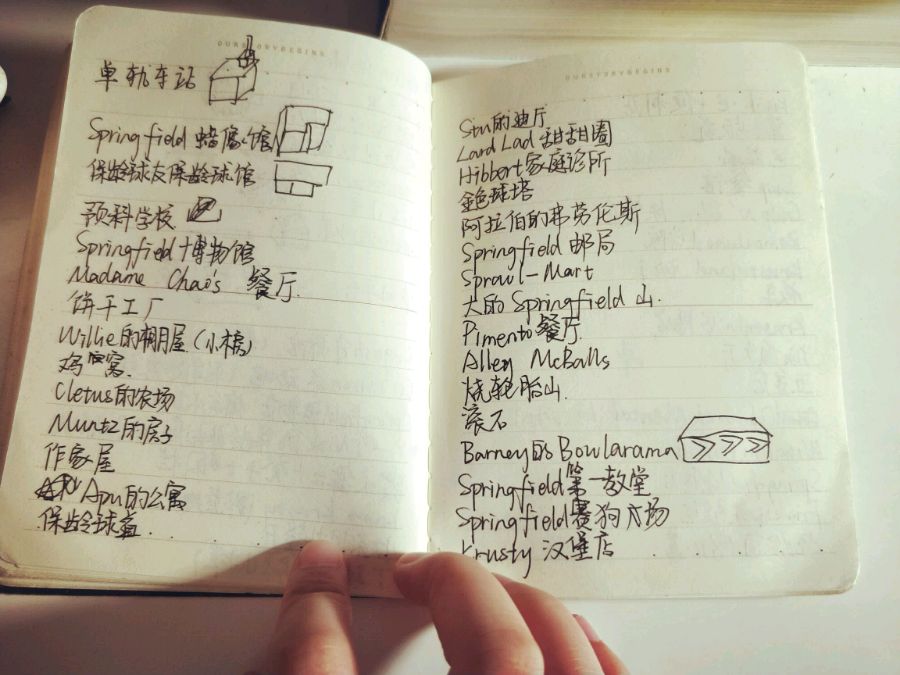 OURSTORYBEGINS
单轨车站
Springfield 蜡像馆
保龄球友保龄球馆
预科学校
Springfield 博物馆
Madame Chao's 餐厅.
饼干工厂
Willie的棚屋.(小木房)
鸡窝.
Cletus的农场
Muntz的房子
作家屋
Apu的公寓
保龄球
OURSTORYBEGINS
Stu的迪厅
Lard Lad 甜甜圈
Hibbert家庭诊所
金色球塔
阿拉伯的弗劳伦斯
Springfield 邮局
Sprawl-Mart
大的Springfield 山.
Pimento餐厅.
Alley McBalls
烧轮胎山.
滚石
Barney的Bowlarama
Springfield第一教堂
Springfield赛狗大场
Krusty 汉堡店